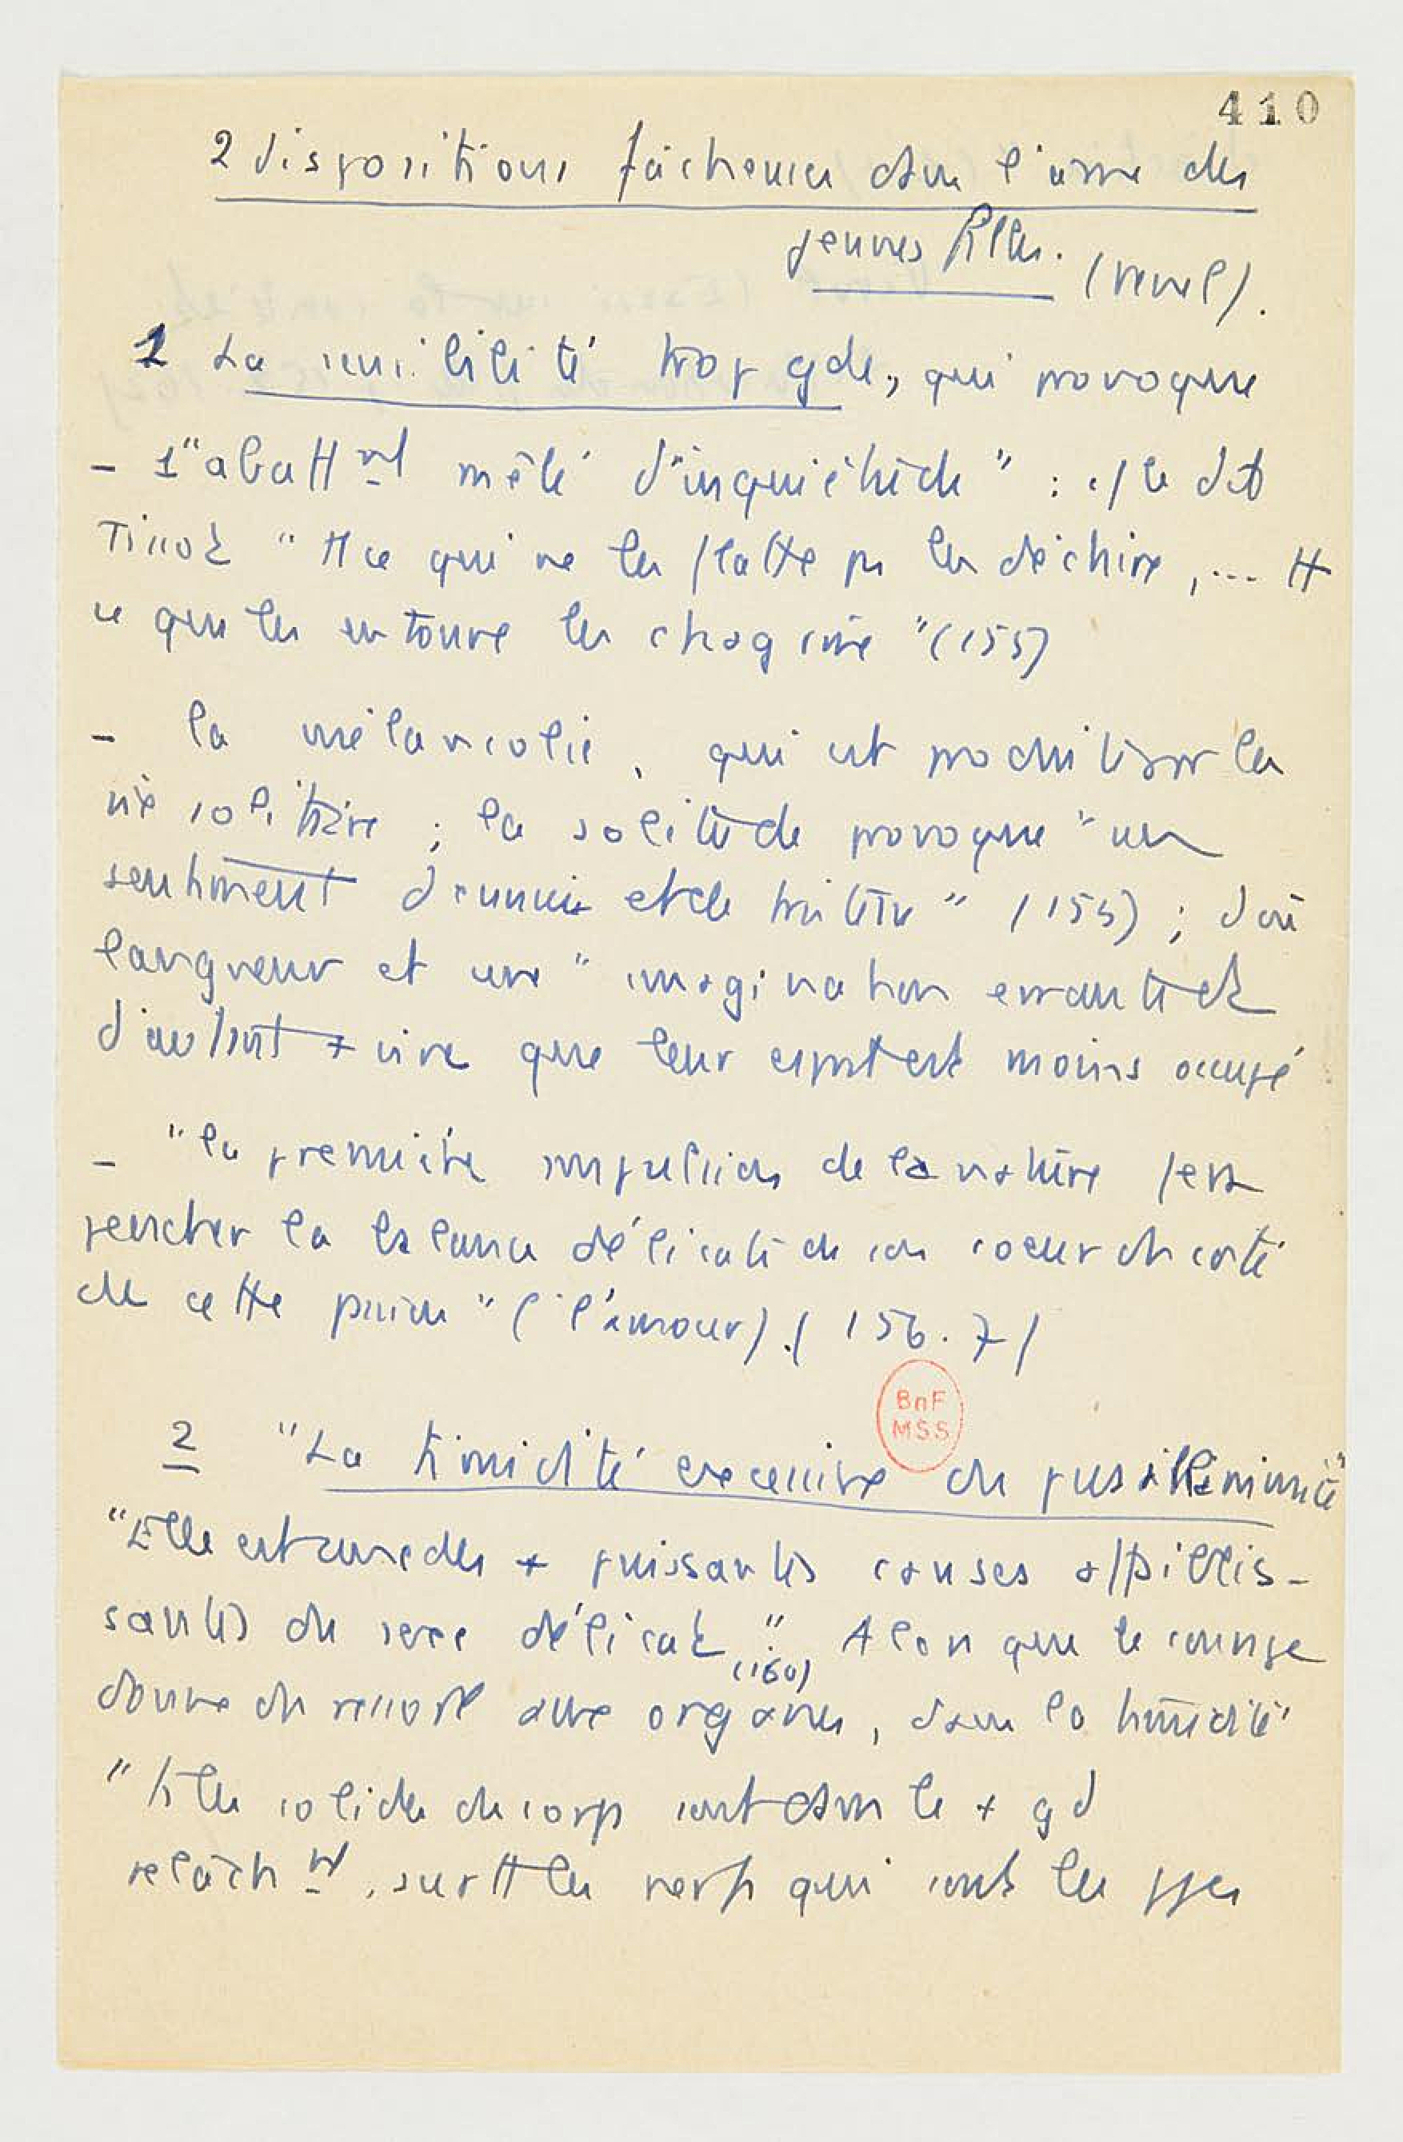 410
2 dispositions fâcheuses dans l'âme des
jeunes filles. (Venel).
1 La sensibilité trop gde, qui provoque
- 1 "abattmt mêlé d'inquiétude" : c/ le dit
Tissot "tt ce qui ne les flatte pas les déchire, ... tt
ce qui les entoure les chagrine" (155)
- la mélancolie, qui est produite par la
vie solitaire ; la solitude provoque "un
sentiment d'ennui et de tristesse" (155) ; d'où
langueur et une "imagination errante et
d'autant + vive que leur esprit est moins occupé
- "la première impulsion de la nature fera
pencher la balance délicate de son coeur du côté
de cette passion" (l'amour). (156.7)
2 "La timidité excessive ou pusillanimité"
"Elle est une des + puissantes causes affaiblis-
santes du sexe délicat." Alors que le courage
(160)
donne du ressort aux organes, dans la timidité
"tts les solides du corps sont dans le + gd
relâchmt, surtt les nerfs qui sont les
BnF
MSS